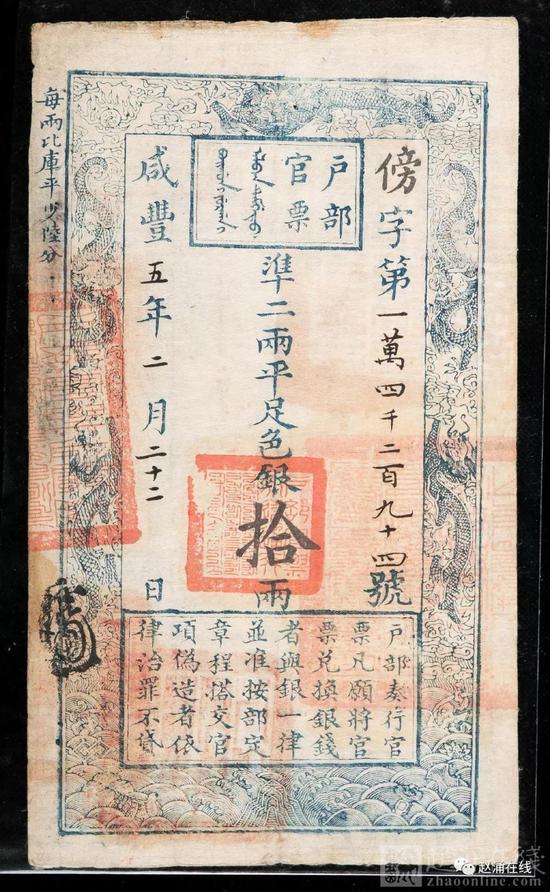 每兩比庫平少陸分
户部
官票
傍字第一萬四千二百九十四號
準二兩平足色銀拾兩
咸豐五年二月二十二日
户部奏行官
票凡願將官
票兑換銀錢
者與銀一律
並准按部定
章程搭交官
項偽造者依
律治罪不貸
赵涌在线
zhaoonline.com